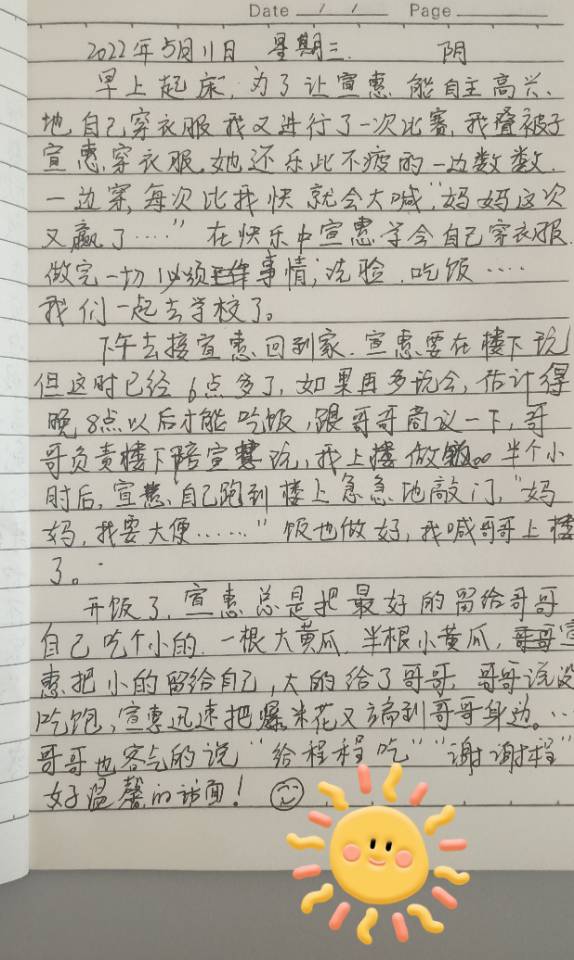 Date / / Page
2022年5月11日 星期三. 阴
早上起床, 为了让宣惠能自主高兴、
地自己穿衣服我又进行了一次比赛, 我叠被子
宣惠穿衣服. 她还乐此不疲的一边数数.
一边穿, 每次比我快就会大喊, "妈妈这次
又赢了····" 在快乐中宣惠学会自己穿衣服.
做完一切必须事情, 洗脸. 吃饭····
我们一起去学校了。
下午去接宣惠回到家. 宣惠要在楼下玩
但这时已经6点多了, 如果再多玩会, 估计得
晚8点以后才能吃饭, 跟哥哥商议一下, 哥
哥负责楼下陪宣慧玩, 我上楼做饭。。半个小
时后, 宣惠自己跑到楼上急急地敲门, "妈
妈, 我要大便······" 饭也做好, 我喊哥哥上楼
了。
开饭了, 宣惠总是把最好的留给哥哥
自己吃个小的. 一根大黄瓜. 半根小黄瓜, 宣
惠把小的留给自己, 大的给了哥哥, 哥哥说没
吃饱, 宣惠迅速把爆米花又端到哥哥身边。··
哥哥也客气的说 "给程程吃" "谢谢程"
好温馨的话面!